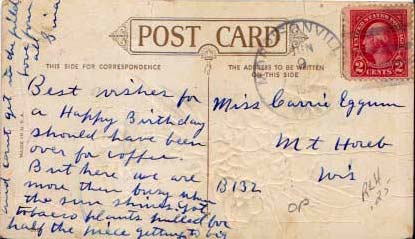 POST CARD
THIS SIDE FOR CORRESPONDENCE
THE ADDRESS TO BE WRITTEN
ON THIS SIDE
MADE IN U.S.A.
2 CENTS 2
Best wishes for
a Happy Birthday
should have been
over for coffee.
But here we are
more then busy when
the sun shines, got
tobacco plants pulled for
half the piece getting to big
and cant get in the field
love from
all
Miss Carrie Eggum
Mt Horeb
Wis
B132
OP